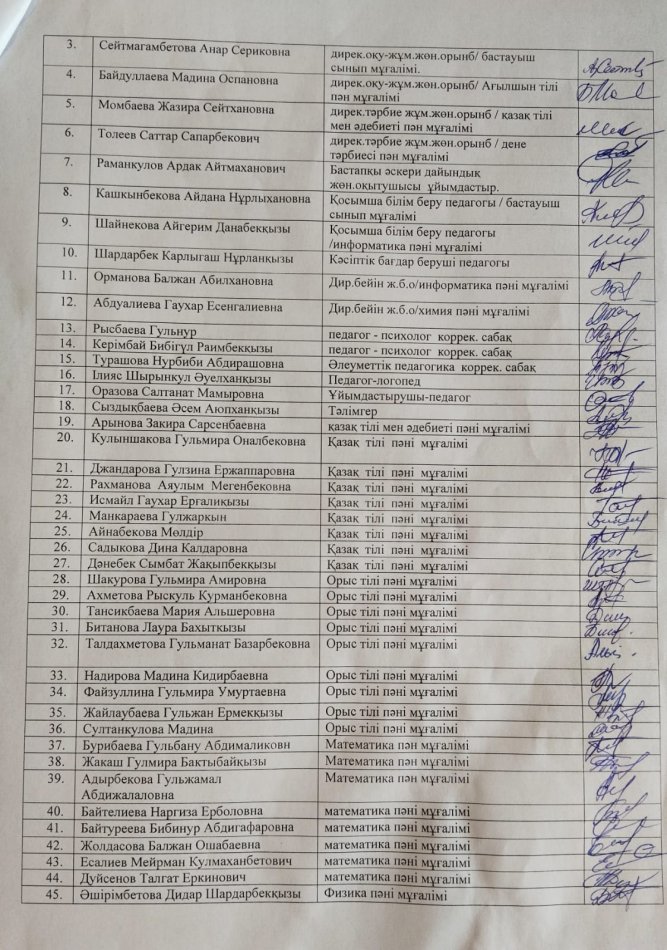 3. Сейтмагамбетова Анар Сериковна дирек.оқу-жұм.жөн.орынб/ бастауыш
сынып мұғалімі.
4. Байдуллаева Мадина Оспановна дирек.оқу-жұм.жөн.орынб/ Ағылшын тілі
пән мұғалімі
5. Момбаева Жазира Сейтхановна дирек.тәрбие жұм.жөн.орынб / қазақ тілі
мен әдебиеті пән мұғалімі
6. Толеев Саттар Сапарбекович дирек.тәрбие жұм.жөн.орынб / дене
тәрбиесі пән мұғалімі
7. Раманкулов Ардак Айтмаханович Бастапқы әскери дайындық
жөн.оқытушысы ұйымдастыр.
8. Кашкынбекова Айдана Нұрлыхановна Қосымша білім беру педагогы / бастауыш
сынып мұғалімі
9. Шайнекова Айгерим Данабекқызы Қосымша білім беру педагогы
/информатика пәні мұғалімі
10. Шардарбек Карлыгаш Нұрланкызы Кәсіптік бағдар беруші педагогы
11. Орманова Балжан Абилхановна Дир.бейін ж.б.о/информатика пәні мұғалімі
12. Абдуалиева Гаухар Есенгалиевна Дир.бейін ж.б.о/химия пәні мұғалімі
13. Рысбаева Гульнур педагог - психолог коррек. сабақ
14. Керімбай Бибігүл Раимбекқызы педагог - психолог коррек. сабақ
15. Турашова Нурбиби Абдирашовна Әлеуметтік педагогика коррек. сабақ
16. Ілияс Шырынкул Әуелханқызы Педагог-логопед
17. Оразова Салтанат Мамыровна Ұйымдастырушы-педагог
18. Сыздықбаева Әсем Аюпханқызы Тәлімгер
19. Арынова Закира Сарсенбаевна қазақ тілі мен әдебиеті пәні мұғалімі
20. Кулыншакова Гульмира Оналбековна Қазақ тілі пәні мұғалімі
21. Джандарова Гулзина Ержаппаровна Қазақ тілі пәні мұғалімі
22. Рахманова Аяулым Мегенбековна Қазақ тілі пәні мұғалімі
23. Исмайл Гаухар Ерғалиқызы Қазақ тілі пәні мұғалімі
24. Манкараева Гулжаркын Қазақ тілі пәні мұғалімі
25. Айнабекова Мөлдір Қазақ тілі пәні мұғалімі
26. Садыкова Дина Калдаровна Қазақ тілі пәні мұғалімі
27. Дәнебек Сымбат Жақыпбекқызы Қазақ тілі пәні мұғалімі
28. Шакурова Гульмира Амировна Орыс тілі пәні мұғалімі
29. Ахметова Рыскуль Курманбековна Орыс тілі пәні мұғалімі
30. Тансикбаева Мария Альшеровна Орыс тілі пәні мұғалімі
31. Битанова Лаура Бахыткызы Орыс тілі пәні мұғалімі
32. Талдахметова Гульманат Базарбековна Орыс тілі пәні мұғалімі
33. Надирова Мадина Кидирбаевна Орыс тілі пәні мұғалімі
34. Файзуллина Гульмира Умуртаевна Орыс тілі пәні мұғалімі
35. Жайлаубаева Гульжан Ермекқызы Орыс тілі пәні мұғалімі
36. Султанкулова Мадина Орыс тілі пәні мұғалімі
37. Бурибаева Гульбану Абдималиковн Математика пән мұғалімі
38. Жакаш Гулмира Бактыбайқызы Математика пән мұғалімі
39. Адырбекова Гульжамал Математика пән мұғалімі
Абдижалаловна
40. Байтелиева Наргиза Ерболовна математика пәні мұғалімі
41. Байтуреева Бибинур Абдигафаровна математика пәні мұғалімі
42. Жолдасова Балжан Ошабаевна математика пәні мұғалімі
43. Есалиев Мейрман Кулмаханбетович математика пәні мұғалімі
44. Дуйсенов Талгат Еркинович математика пәні мұғалімі
45. Әшірімбетова Дидар Шардарбекқызы Физика пәні мұғалімі